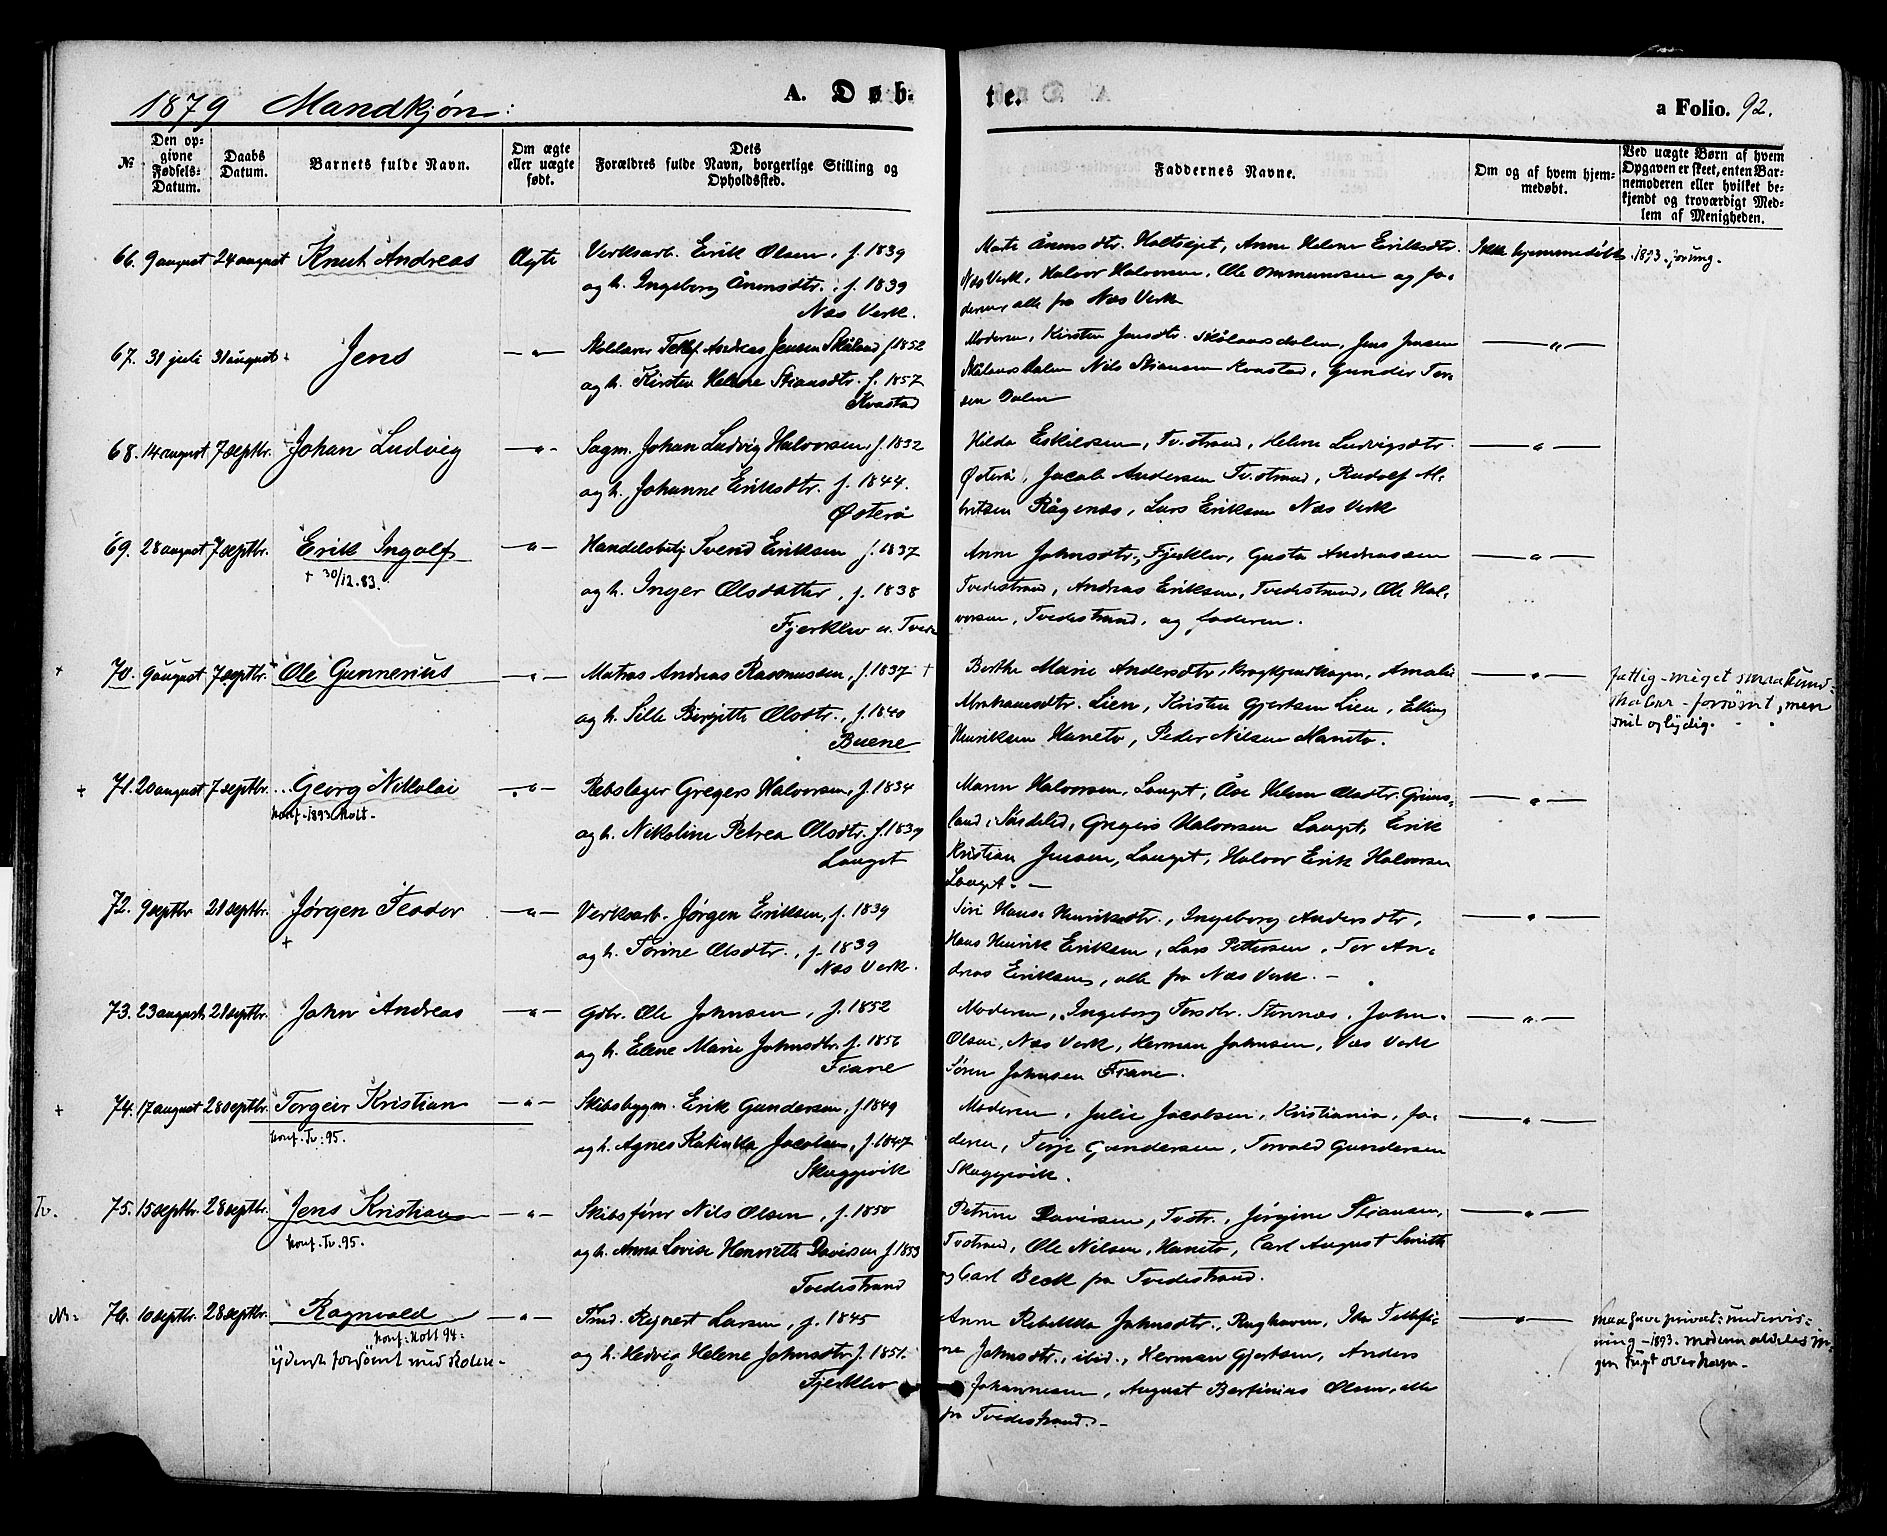 1879 Mandkjøn:
A. Døb-
te.
a Folio. 92.
№
Den op-
givne
Fødsels-
Datum.
Daabs
Datum.
Barnets fulde Navn.
Om ægte
eller uægte
født.
Dets
Forældres fulde Navn, borgerlige Stilling og
Opholdssted.
Faddernes Navne.
Om og af hvem hjem-
medøbt.
Ved uægte Børn af hvem
Opgaven er skeet, enten Bar-
nemoderen eller hvilket be-
kjendt og troværdigt Med-
lem af Menigheden.
66. 9 august 24 august Knut Andreas Ægte
Verksarb. Erik Olsen, f. 1839
og h. Ingeborg Ånonsdtr., f. 1839
Næs Verk.
Marte Ånonsdtr. Holtsejet, Anne Helene Eriksdtr.
Næs Verk, Halvor Halvorsen, Ole Ommunosen og fa-
deren, alle fra Næs Verk
Ikke hjemmedøbt
1893. for ung.
67. 31 juli 31 august Jens — " —
Andreas Jensen f. 1852
og h. Kirsten Helene Stiansdtr. f. 1857
Kvastad
Moderen, Kirsten Jensdtr. Skålandsdalen, Jens Jensen
Skålandsdalen Nils Stiansen Kvastad, Gunder Ter-
sen Dalen
— " —
68. 14 august 7 septbr. Johan Ludvig — " —
Sagm. Johan Ludvig Halvorsen, f. 1832
og h. Johanne Eriksdtr. f. 1844.
Østerå
Hilda Eskilsen, Tv.strand, Helene Ludvigsdtr.
Østerå, Jacob Andersen Tv.strand, Rudolf Al-
britsen Rågenæs, Lars Eriksen Næs Verk
— " —
69. 28 august 7 septbr. Erik Ingolf — " —
+ 30/12.83.
Handelsbetj. Svend Eriksen f. 1837
og h. Inger Olsdatter, f. 1838
Fjerklev v. Tvede
Anne Johnsdtr., Fjerklev, Gusta Andreassen
Tvedestrand, Andreas Eriksen, Tvedestrand, Ole Hal-
vorsen, Tvedestrand, og faderen.
— " —
+ 70. 9 august 7 septbr. Ole Gunnerius — " —
Matros Andreas Rasmussen, f. 1837 +
og h. Sille Birgitte Olsdtr., f. 1840
Buene
Berthe Marie Andersdtr., Amalie
Abrahamsdtr. Lien, Kristen Gjertsen Lien, Elling
Henriksen Haneto, Peder Nilsen Haneto.
— " —
fattig - meget smaa kund-
skaber - forsømt, men
snil og lydig.
+ 71. 20 august 7 septbr. Georg Nikolai — " —
konf. 1893 Holt.
Rebslager Gregers Halvorsen, f. 1834
og h. Nikoline Petrea Olsdtr. f. 1839
Lauget
Maren Halvorsen, Lauget, Åse Helene Olsdtr. Grims-
land i Søndeled, Gregers Halvorsen Lauget, Erik
Kristian Jensen, Lauget, Halvor Erik Halvorsen
Lauget. —
— " —
72. 9 septbr. 21 septbr. Jørgen Teodor — " —
+
Verksarb. Jørgen Eriksen, f. 1839
og h. Torine Olsdtr., f. 1839
Næs Verk.
Siri Hans Henriksdtr., Ingeborg Andersdtr.,
Hans Henrik Eriksen, Lars Pettersen, Tor An-
dreas Eriksen, alle fra Næs Verk. —
— " —
73. 23 august 21 septbr. John Andreas — " —
Gdbr. Ole Johnsen, f. 1852
og h. Elene Marie Johnsdtr. f. 1856
Fiane
Moderen, Ingeborg Torsdtr. Stennæs, John
Olsen, Næs Verk, Herman Johnsen, Næs Verk
Søren Johnsen Fiane.
— " —
+ 74. 17 august 28 septbr. Torgeir Kristian — " —
konf. Tv: 95.
Skibsbygm. Erik Gundersen, f. 1849
og h. Agnes Katinka Jacobsen, f. 1847
Skuggevik
Moderen, Julie Jacobsen, Kristiania, fa-
deren, Terje Gundersen, Torvald Gundersen
Skuggevik.
— " —
Tv. 75. 15 septbr. 28 septbr. Jens Kristian — " —
konf. Tv. 95.
Skibsfører Nils Olsen, f. 1850
og h. Anna Lovise Henriette Davidsen f. 1853
Tvedestrand
Petrine Davidsen, Tvstr., Jørgine Stiansen,
Tvstrand, Ole Nilsen, Haneto, Carl August Smith
og Carl Beck fra Tvedestrand.
— " —
76. 10 septbr. 28 septbr. Ragnvald — " —
konf. Holt 94.
yderst forsømt med Skolen -
Tmd. Rejnert Larsen, f. 1845
og h. Hedvig Helene Johnsdtr. f. 1851.
Fjerklev
Anne Rebekka Johnsdtr., Rughaven, Ida Tellefi-
ne Johnsdtr., ibid., Herman Gjertsen, Anders
Johannesen, August Bertinius Olsen, alle
fra Tvedestrand. —
— " —
maa have privat undervis-
ning - 1893. moderen aldeles in-
gen tugt over ham.